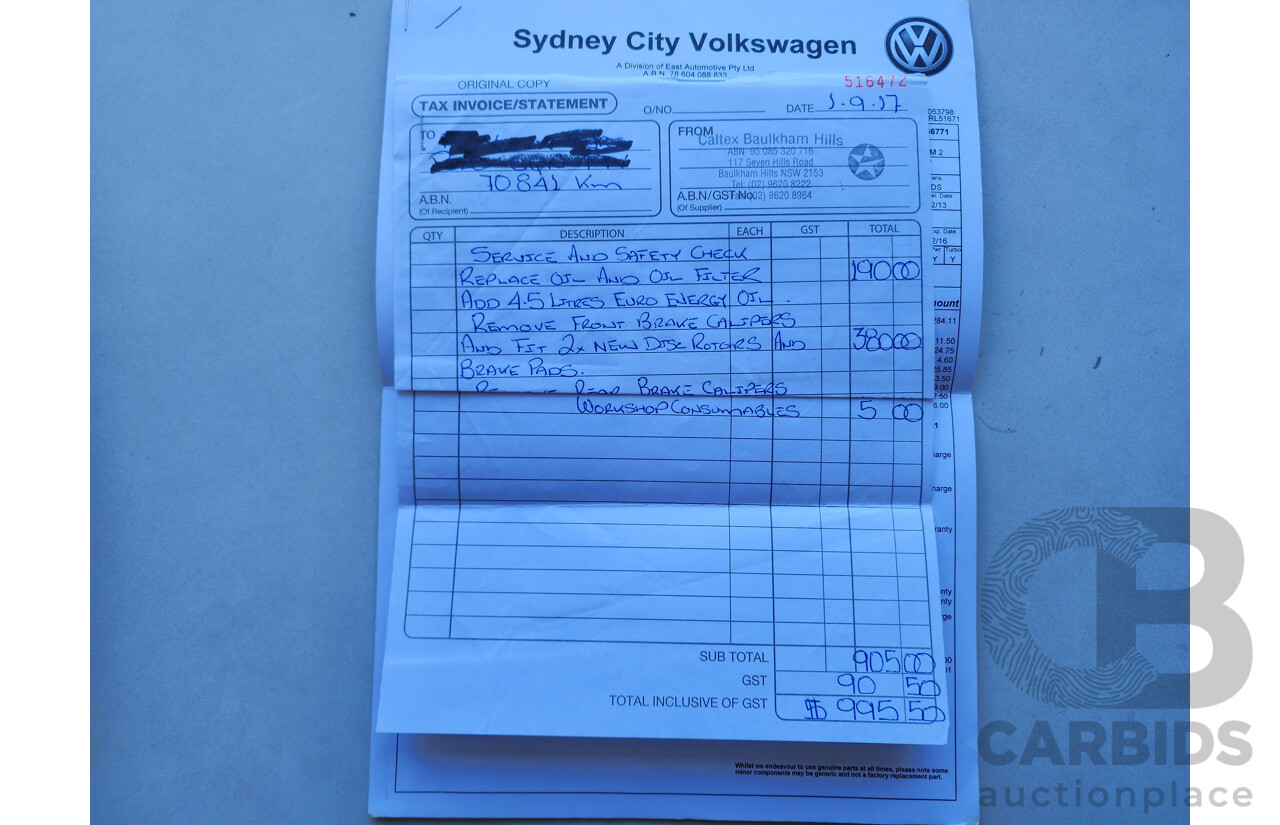 Sydney City Volkswagen
A Division of East Automotive Pty Ltd
A.B.N. 78 604 088 833
ORIGINAL COPY
516472
TAX INVOICE/STATEMENT
O/NO
DATE 1.9.17
TO
70841 Km
A.B.N.
(Of Recipient)
FROM
Caltex Baulkham Hills
ABN: 95 085 320 716
117 Seven Hills Road
Baulkham Hills NSW 2153
Tel: (02) 9620 8222
(02) 9620 8964
A.B.N/GST No.
(Of Supplier)
053798
RL51671
6771
M 2
DS
2/13
Date
2/16
Turbo
Y Y
QTY DESCRIPTION EACH GST TOTAL
SERVICE AND SAFETY CHECK
REPLACE OIL AND OIL FILTER 190 00
ADD 4.5 LITRES EURO ENERGY OIL.
REMOVE FRONT BRAKE CALIPERS
AND FIT 2x NEW DISC ROTORS AND 380 00
BRAKE PADS.
REAR BRAKE CALIPERS
WORKSHOP CONSUMABLES 5 00
ount
284.11
11.50
24.75
4.60
25.85
3.50
9.00
7.50
6.00
arge
harge
ranty
nty
nty
ge
SUB TOTAL 905 00
GST 90 50
TOTAL INCLUSIVE OF GST $ 995 50
Whilst we endeavour to use genuine parts at all times, please note some
minor components may be generic and not a factory replacement part.
CB
CARBIDS
auctionplace